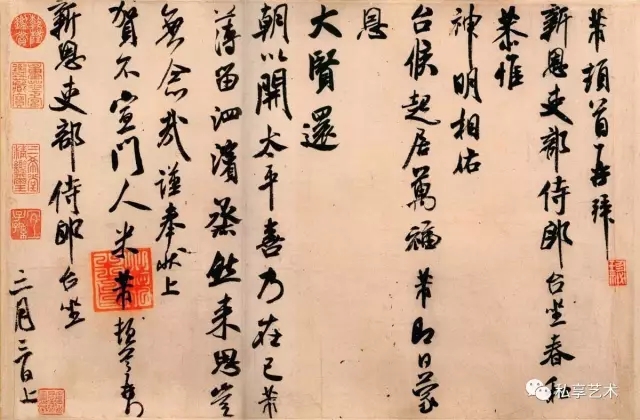 芾頓首再拜
新恩吏部侍郎台坐春
恭惟
神明相佑
台候起居萬福芾即日蒙
恩
大賢還
朝以開太平喜乃在己芾
薄留泗濱蒸然來思豈
無念哉謹奉狀上
賀不宣門人米芾頓首
新恩吏部侍郎台坐
三月三日上
三希堂精鑑璽
宜子孫
私享艺术